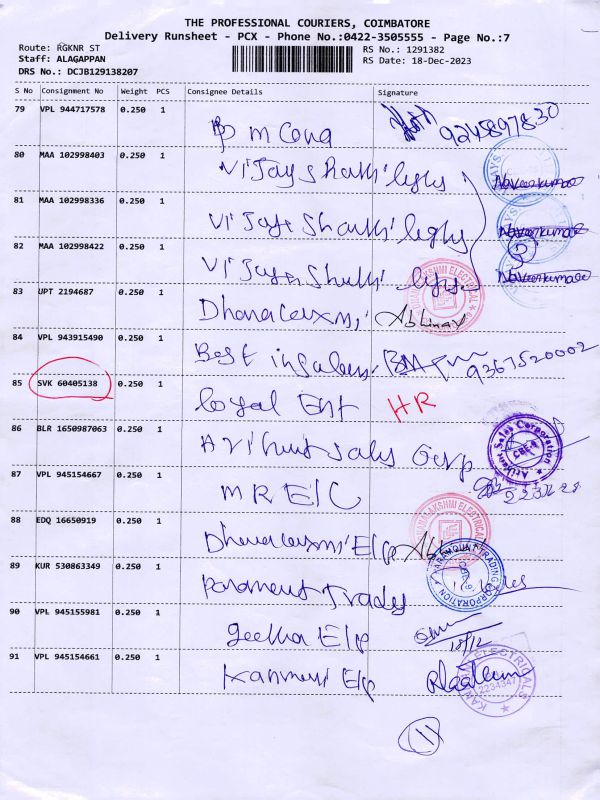 THE PROFESSIONAL COURIERS, COIMBATORE
Delivery Runsheet - PCX - Phone No.:0422-3505555 - Page No.:7
Route: RGKNR ST
Staff: ALAGAPPAN
DRS No.: DCJB129138207
RS No.: 1291382
RS Date: 18-Dec-2023
S No Consignment No Weight PCS Consignee Details Signature
79 VPL 944717578 0.250 1 9245897830
80 MAA 102998403 0.250 1 Vijay Shakthi Naveenkumar
81 MAA 102998336 0.250 1 Naveenkumar
82 MAA 102998422 0.250 1 Naveenkumar
83 UPT 2194687 0.250 1 Dhanalaxmi Abhinav
84 VPL 943915490 0.250 1 Best 9367520002
85 SVK 60405138 0.250 1 Loyal Ent HR
86 BLR 1650987063 0.250 1 Arihant Sales Corp
Arihant Sales Corporation
CBE-9
87 VPL 945154667 0.250 1 MR EIC
88 EDQ 16650919 0.250 1 Dhanalaxmi Elp
89 KUR 530863349 0.250 1
90 VPL 945155981 0.250 1 Geetha Elp 18/12
91 VPL 945154661 0.250 1 Elp
2234347
11